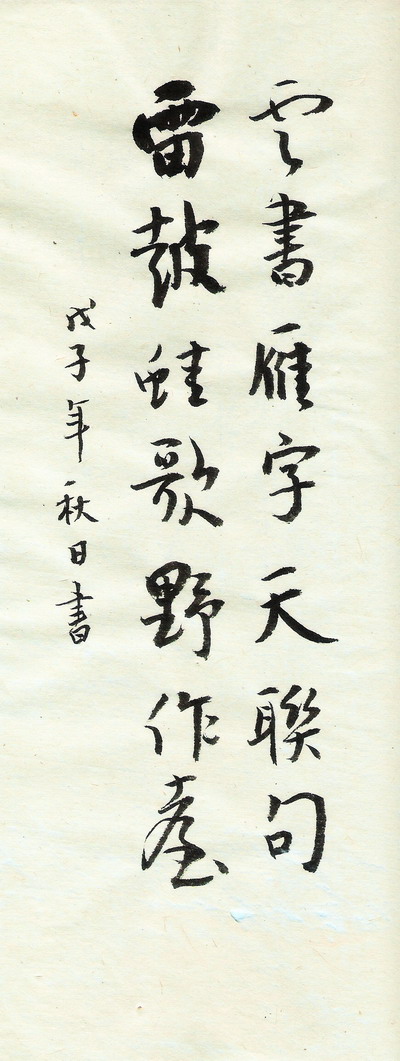 雲書雁字天聯句
雷鼓蛙歌野作臺
戊子年秋日書